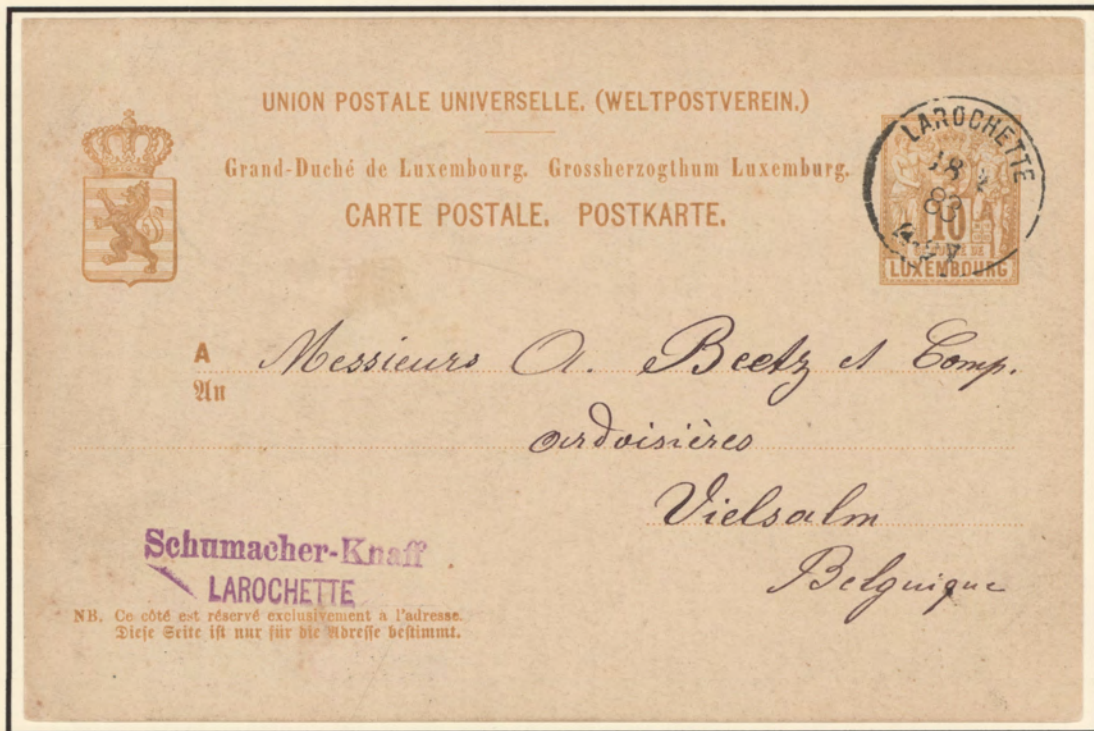 UNION POSTALE UNIVERSELLE. (WELTPOSTVEREIN.)
Grand-Duché de Luxembourg. Grossherzogthum Luxemburg.
CARTE POSTALE. POSTKARTE.
LAROCHETTE
18
83
10
LUXEMBOURG
A Messieurs A. Beetz et Comp.
An
ardoisières
Vielsalm
Belguique
Schumacher-Knaff
LAROCHETTE
NB. Ce côté est réservé exclusivement à l'adresse.
Diese Seite ist nur für die Adresse bestimmt.